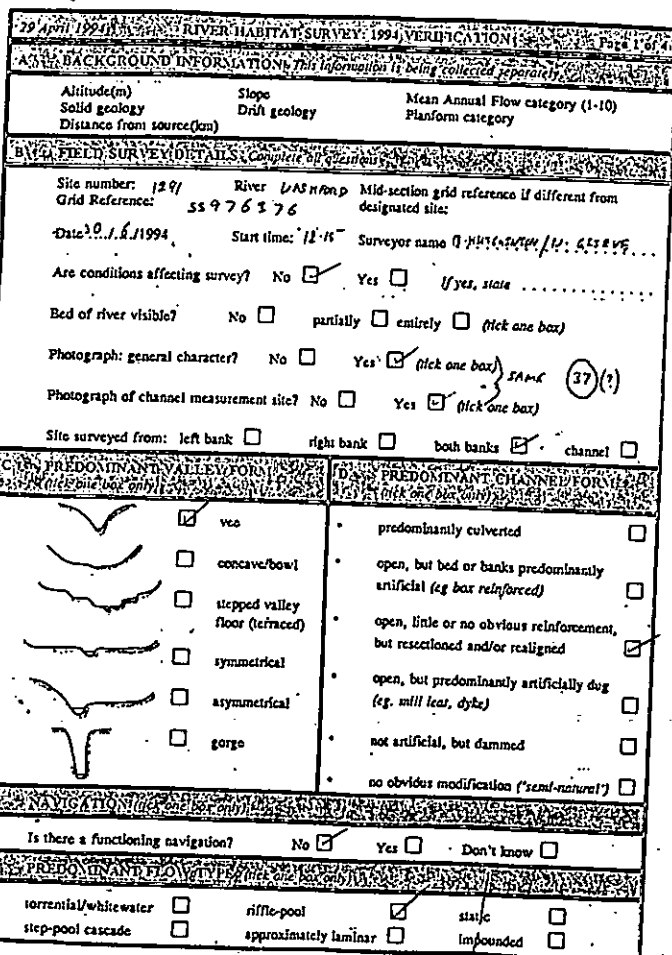 29 April 1994 RIVER HABITAT SURVEY: 1994 VERIFICATION Page 1 of 4
A BACKGROUND INFORMATION This information is being collected separately
Altitude(m) Slope Mean Annual Flow category (1-10)
Solid geology Drift geology Planform category
Distance from source(km)
B FIELD SURVEY DETAILS Complete all questions
Site number: 1291 River Mid-section grid reference if different from
Grid Reference: SS976376 designated site:
Date 10/6/1994 Start time: 12.15 Surveyor name
Are conditions affecting survey? No Yes If yes, state ..............
Bed of river visible? No partially entirely (tick one box)
Photograph: general character? No Yes (tick one box)
SAME 37 (?)
Photograph of channel measurement site? No Yes (tick one box)
Site surveyed from: left bank right bank both banks channel
C PREDOMINANT VALLEY FORM
(tick one box only)
vee
concave/bowl
stepped valley
floor (terraced)
symmetrical
asymmetrical
gorge
D PREDOMINANT CHANNEL FORM
(tick one box only)
predominantly culverted
open, but bed or banks predominantly
artificial (eg box reinforced)
open, little or no obvious reinforcement,
but resectioned and/or realigned
open, but predominantly artificially dug
(eg. mill leat, dyke)
not artificial, but dammed
no obvious modification ("semi-natural")
NAVIGATION (tick one box only)
Is there a functioning navigation? No Yes Don't know
PREDOMINANT FLOW TYPE (tick one box only)
torrential/whitewater riffle-pool static
step-pool cascade approximately laminar impounded